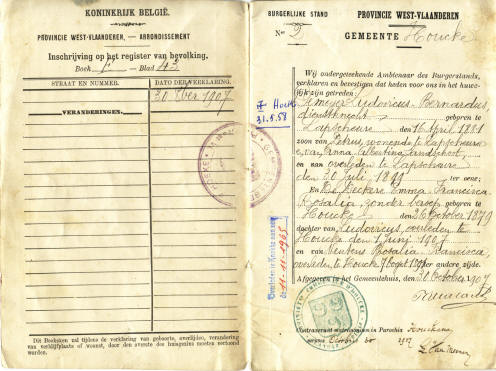 KONINKRIJK BELGIË.
PROVINCIE WEST-VLAANDEREN, — ARRONDISSEMENT
Inschrijving op het register van bevolking.
Boek F — Blad 43
STRAAT EN NUMMER. DATO DER VERKLARING.
30 8ber 1907
VERANDERINGEN.
Dit Boeksken zal tijdens de verklaring van geboorte, overlijden, verandering
van verblijfplaats of woonst, door den overste des huisgezins moeten vertoond
worden.
BURGERLIJKE STAND
PROVINCIE WEST-VLAANDEREN
Nr 2
GEMEENTE Houcke
Wij ondergeteekende Ambtenaar des Burgerstands,
verklaren en bevestigen dat heden voor ons in het huwe-
lijk zijn getreden:
Ludovicus Bernardus,
dienstknecht geboren te
Lapscheure den 16 April 1881
zoon van Petrus, wonende te Lapscheure
en van Anna
en van overleden te Lapscheure
den 30 Juli 1899 ter eene;
En De Deckere Emma Francisca
Rosalia, zonder beroep geboren te
Houcke den 26 October 1879
dochter van Ludovicus, overleden te
Houcke den 1 Juni 1907
en van Rosalia Francisca,
overleden te Houcke ter andere zijde.
Afgegeven ter Gemeentehuis, den 30 October 1907
Contraxerunt matrimonium in Parochia Houckena
30 1907
Houcke
31.5.58
Overleden te
11-11-1965